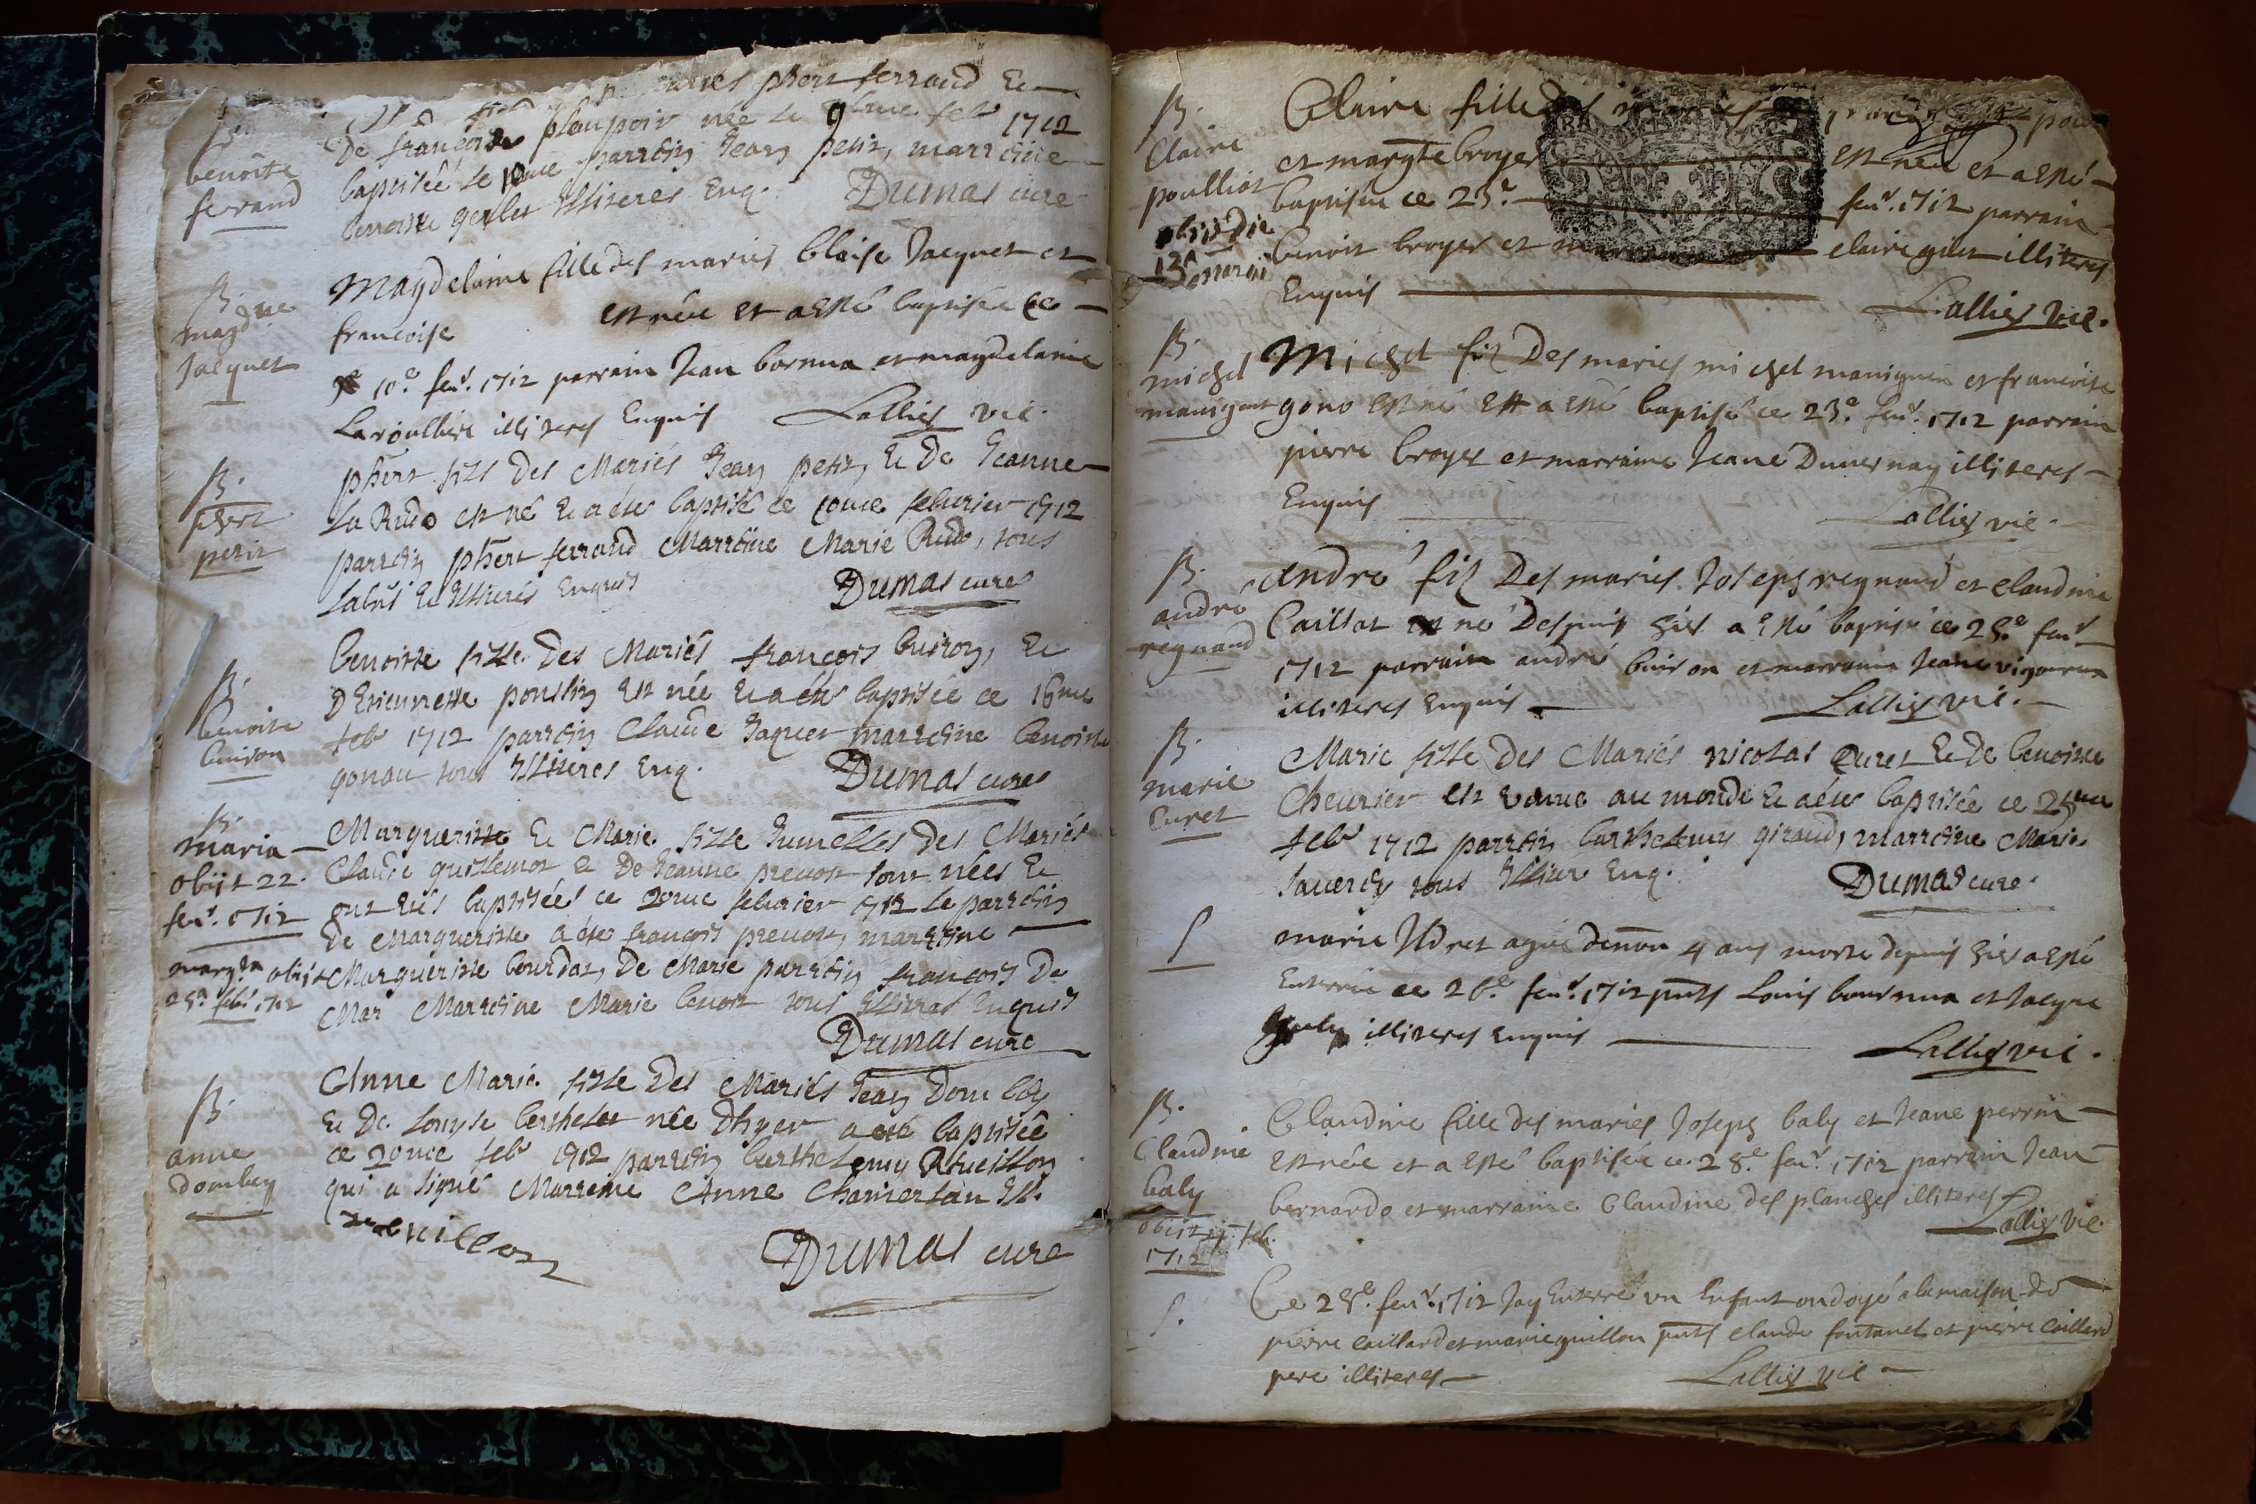 B.
benoîte
ferrand
mariés phert ferrand &
De françoise ploupoir née le 9eme feb 1712
baptisée le 10me parrein Jean petit, marreine
benoiste illiteres Enq. Dumas cure
B.
magdne
Jacquet
Magdelaine fille des mariés blaise Jacquet et
francoise est née et a esté baptisée ce
10.e feu.r 1712 parrain Jean bornua et magdelaine
Laroulliere illiteres Enquis Lallier vic.
B.
phert
petit
phert fils des Mariés Jean petit, & De Jeanne
La Rudo est né & a été baptisé ce 10me februrier 1712
parrein phert ferrand Marreine Marie Rudo, tous
Labrs & Illiterés Enquis Dumas cure
B.
benoite
buison
benoiste fille des Mariés françois buison, &
D Etiennette ponsin est née & a été baptisée ce 16me
feb 1712 parrein Claude Jaquet marreine benoiste
gonau tous Illiteres Enq. Dumas cure
B.
maria
obiit 22.
feu.r 1712
margta obiit
25a feb.r 1712
Marguerite & Marie fille Jumelles des Mariés
Claude guillemot & De Jeanne preuost sont nées &
ont étés baptisées ce 20me februrier 1712 le parrein
de Marguerite a été françois preuost, marreine
Marguerite bourdat, De Marie parrein françois De
Mar Marreine Marie benoit tous Illiteres Enquis
Dumas cure
B.
anne
dombey
Anne Marie fille des Mariés Jean Dombey
& De Louyse berthelet née Dhyer a été baptisée
ce 20me feb 1712 parrein barthelemy Reueillon
qui a signé Marreine Anne Chamerlan Ill.
Dumas cure
B.
Claire
poulliot
obiit die
13a martii
Claire fille des mariés
et margte broyer est née et a esté
baptisée ce 23.e feu.r 1712 parrain
benoit broyer et marraine claire gilet illiteres
Enquis Lallier vic.
B.
michel
manigant
Michel fils des mariés michel maniguen et francoise
gono est né et a esté baptisé ce 23.e feu.r 1712 parrain
pierre broyer et marraine Jeane Duuernay illiteres
Enquis Lallier vic.
B.
andré
regnaud
andré fils des mariés Joseph regnaud et claudine
Caillot est né despuis hier a esté baptisé ce 25.e feu.r
1712 parrain andré buison et marraine Jeane vigoureux
illiteres Enquis Lallier vic.
B.
marie
Curet
Marie fille des Mariés nicolas Curet & De benoiste
Cheurier est venue au monde & a été baptisée ce 25me
feb 1712 parrein barthelemy giraud, marreine Marie
tous Illiter Enq. Dumas cure.
S
marie Udret agée denuon 4 ans morte depuis hier a esté
Enterrée ce 26.e feu.r 1712 pnts Louis bournua et Jacque
illiteres Enquis Lallier vic.
B.
Claudine
baly
obiit
feb.
1712
Claudine fille des mariés Joseph baly et Jeane perrin
est née et a esté baptisée ce 28.e feu.r 1712 parrain Jean
bernardo et marraine Claudine des planches illiteres
Lallier vic.
S.
Ce 28.e feu.r 1712 Jay Enterré vn Enfant ondoyé a la maison de
pierre caillard et marie guillon pnts claude fontanel et pierre caillard
pere illiteres Lallier vic